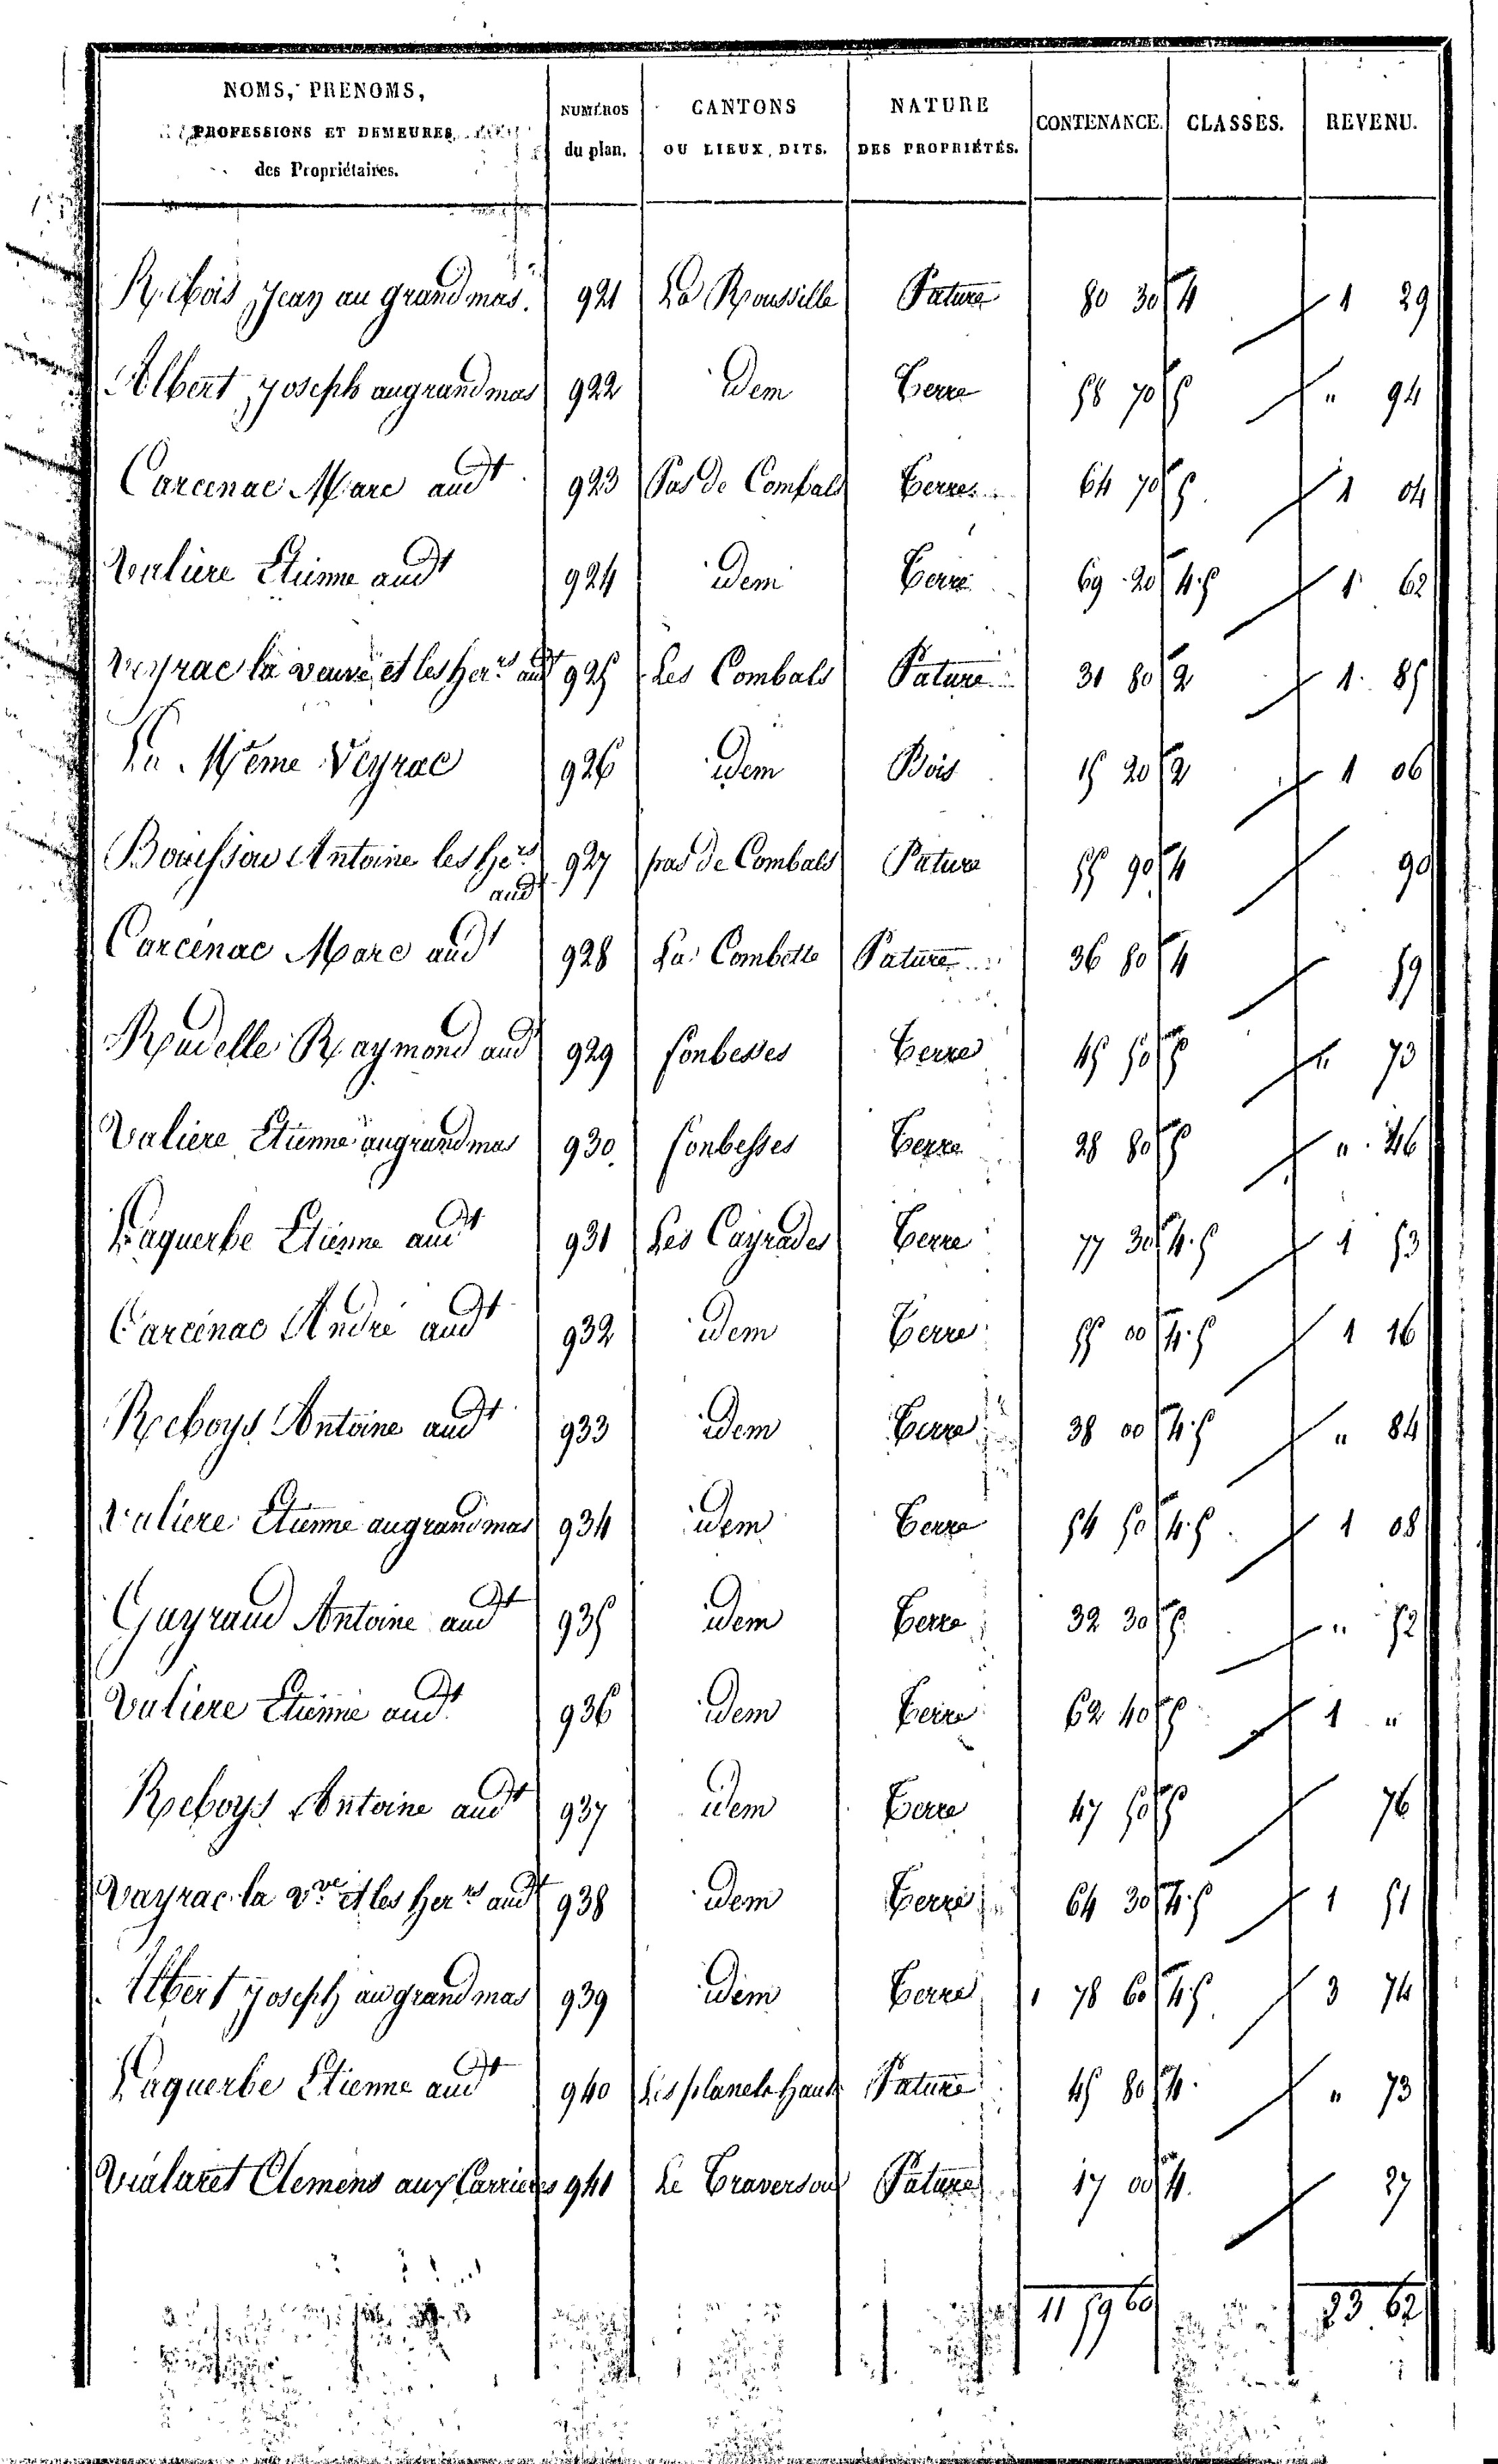 NOMS, PRENOMS,
PROFESSIONS ET DEMEURES
des Propriétaires.
NUMÉROS
du plan.
CANTONS
OU LIEUX DITS.
NATURE
DES PROPRIÉTÉS.
CONTENANCE.
CLASSES.
REVENU.
Rebois Jean au grand mas. 921 La Roussille Pature 80 30 4 1 29
Albert Joseph au grand mas 922 idem Terre 58 70 5 " 94
Carcenac Marc aud.t 923 Pas de Combals Terre 64 70 5 1 04
Valiere Etienne aud.t 924 idem Terre 69 20 4.5 1 62
Veyrac la veuve et les her.rs aud.t 925 Les Combals Pature 31 80 2 1 85
La Même Veyrac 926 idem Bois 15 20 2 1 06
Bouissou Antoine les he.rs 927 pas de Combals Pature 55 90 4 90
aud.t
Carcenac Marc aud.t 928 La Combette Pature 36 80 4 59
Rudelle Raymond aud.t 929 fonbesses Terre 45 50 5 " 73
Valiere Etienne au grand mas 930 fonbesses Terre 28 80 5 " 46
Laquerbe Etienne aud.t 931 Les Cayrades Terre 77 30 4.5 1 53
Carcenac André aud.t 932 idem Terre 55 00 4.5 1 16
Reboys Antoine aud.t 933 idem Terre 38 00 4.5 " 84
Valiere Etienne au grand mas 934 idem Terre 54 50 4.5 1 08
Gayraud Antoine aud.t 935 idem Terre 32 30 5 " 52
Valiere Etienne aud.t 936 idem Terre 62 40 5 1 "
Reboys Antoine aud.t 937 idem Terre 47 50 5 76
Vayrac la v.ve et les her.rs aud.t 938 idem Terre 64 30 4.5 1 51
Albert Joseph au grand mas 939 idem Terre 1 78 60 4.5 3 74
Laquerbe Etienne aud.t 940 Les planels hauts Pature 45 80 4 " 73
Vialaret Clemens aux Carrieres 941 Le Traversou Pature 17 00 4 27
11 59 60 23 62